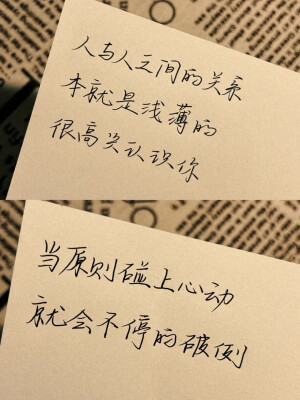 人与人之间的关系
本就是浅薄的
很高兴认识你
当原则碰上心动
就会不停的破例